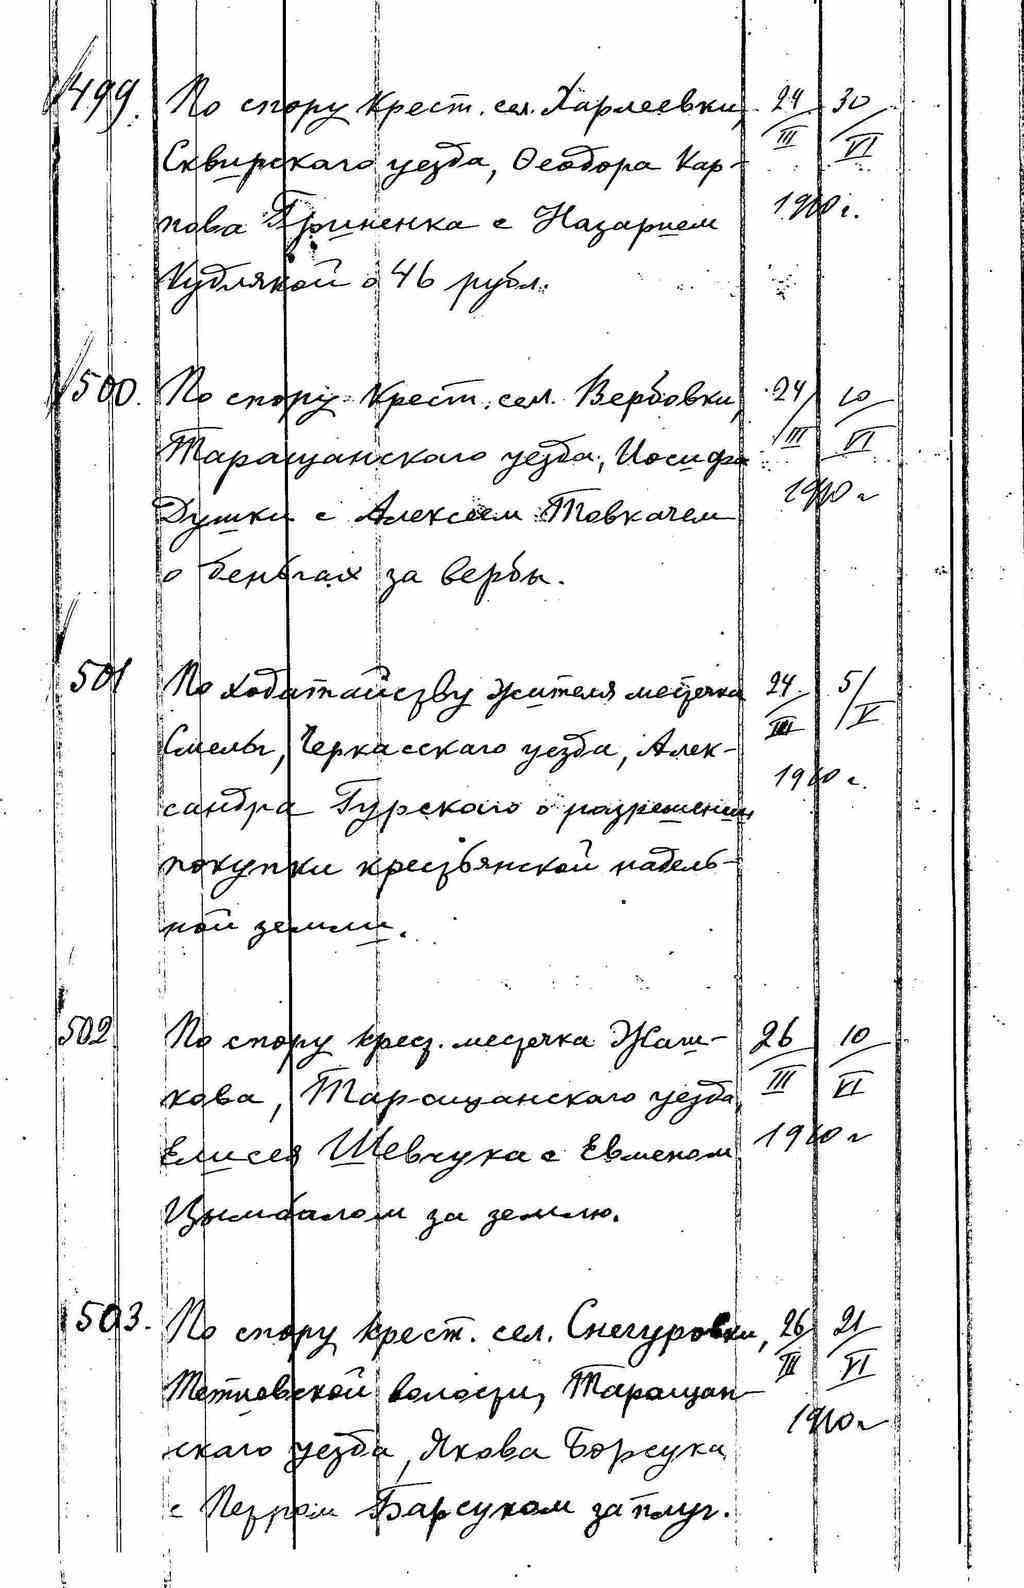 499. По спору крест. сел. Харлеевки, 24 30
Сквирскаго уезда, Феодора Кар- III VI
пова Гриненка с Назарием 1910 г.
Кубляной о 46 рубл.
500. По спору крест. сел. Вербовки, 24 10
Таращанскаго уезда, Иосифа III VI
Душки с Алексеем Товкачем 1910 г
о деньгах за вербы.
501 По ходатайству жителя местечка 24 5/
Смелы, Черкасскаго уезда, Алек- III V
сандра Гурскаго о разрешении 1910 г.
покупки крестьянской надель-
ной земли.
502 По спору крест. местечка Жаш- 26 10
кова, Таращанскаго уезда, III VI
Елисея Шевчука с Евменом 1910 г
Цымбалом за землю.
503. По спору крест. сел. Снегуровки, 26 21
Тетиевской волости, Таращан- III VI
скаго уезда, Якова Борсука 1910 г
с Петром Барсуком за плуг.